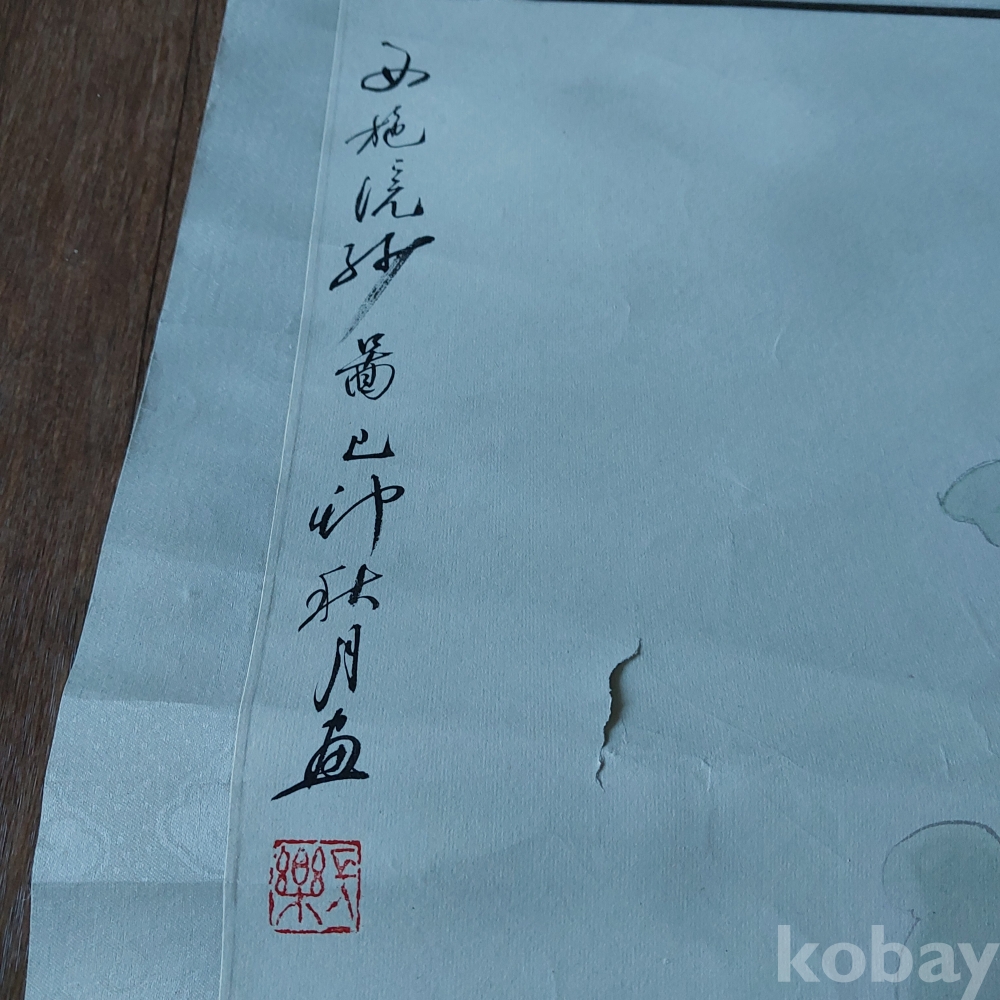 西施浣紗圖己卯秋月画
kobay